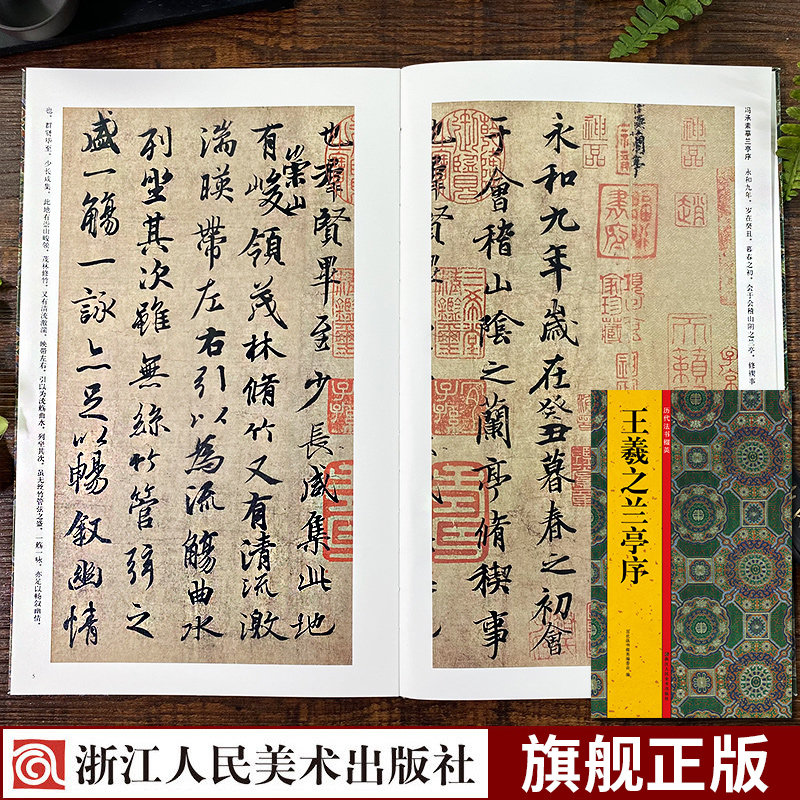 冯承素摹兰亭序 永和九年，岁在癸丑，暮春之初，会于会稽山阴之兰亭，修禊事
永和九年歲在癸丑暮春之初會
于會稽山陰之蘭亭脩稧事
也羣賢畢至少長咸集此地
有崇山峻領茂林脩竹又有清流激
湍暎帶左右引以為流觴曲水
列坐其次雖無絲竹管弦之
盛一觴一詠亦足以暢叙幽情
也。群贤毕至，少长咸集。此地有崇山峻领，茂林修竹，又有清流激湍，映带左右，引以为流觞曲水，列坐其次。虽无丝竹管弦之盛，一觞一咏，亦足以畅叙幽情。
5
神品
神品
趙
書府
珍藏
天籟
历代法书撷英
王羲之兰亭序
浙江人民美术出版社
浙江人民美术出版社
旗舰正版